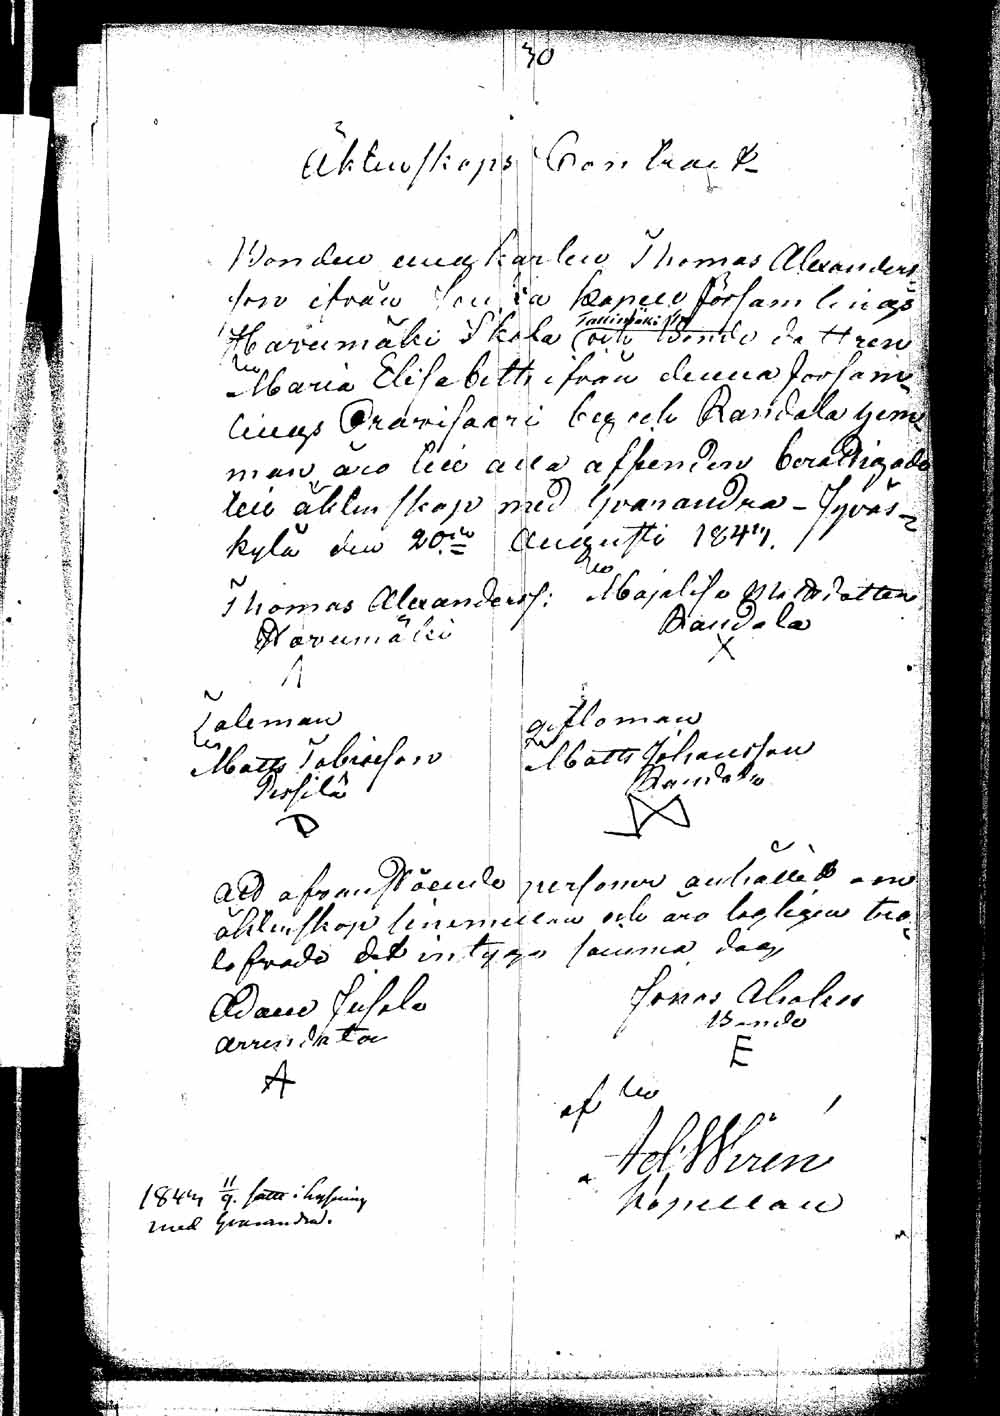 30
Äktenskaps Contrackt
Bonden ungkarlen Thomas Alexanders
son ifrån kapell församlings
Harumäki Skola och Bonde dottren
Maria Elisabeth ifrån denna försam
lings by och Randala hem
man äro till alla affender berättigade
till äktenskap med hvarandra - Jyväs-
kylä den 20de Augusti 1847.
Thomas Alexanderss: Majalisa Mattsdotter
Harumäki Randala
Taleman
Matts Tobiasson
Pirsilä
giftoman
Matts Johansson
Randala
Att ofvanstående personer anhållit om
äktenskap sinnemellan och äro lagligen tro
lofvade det intyga samma dag
Adam Juhola
arrendator
A
Jonas Aholen
Bonde
E
af
Ad. Wirén
Kapellan
1847 11/9. satte i lysning
med hvarandra.